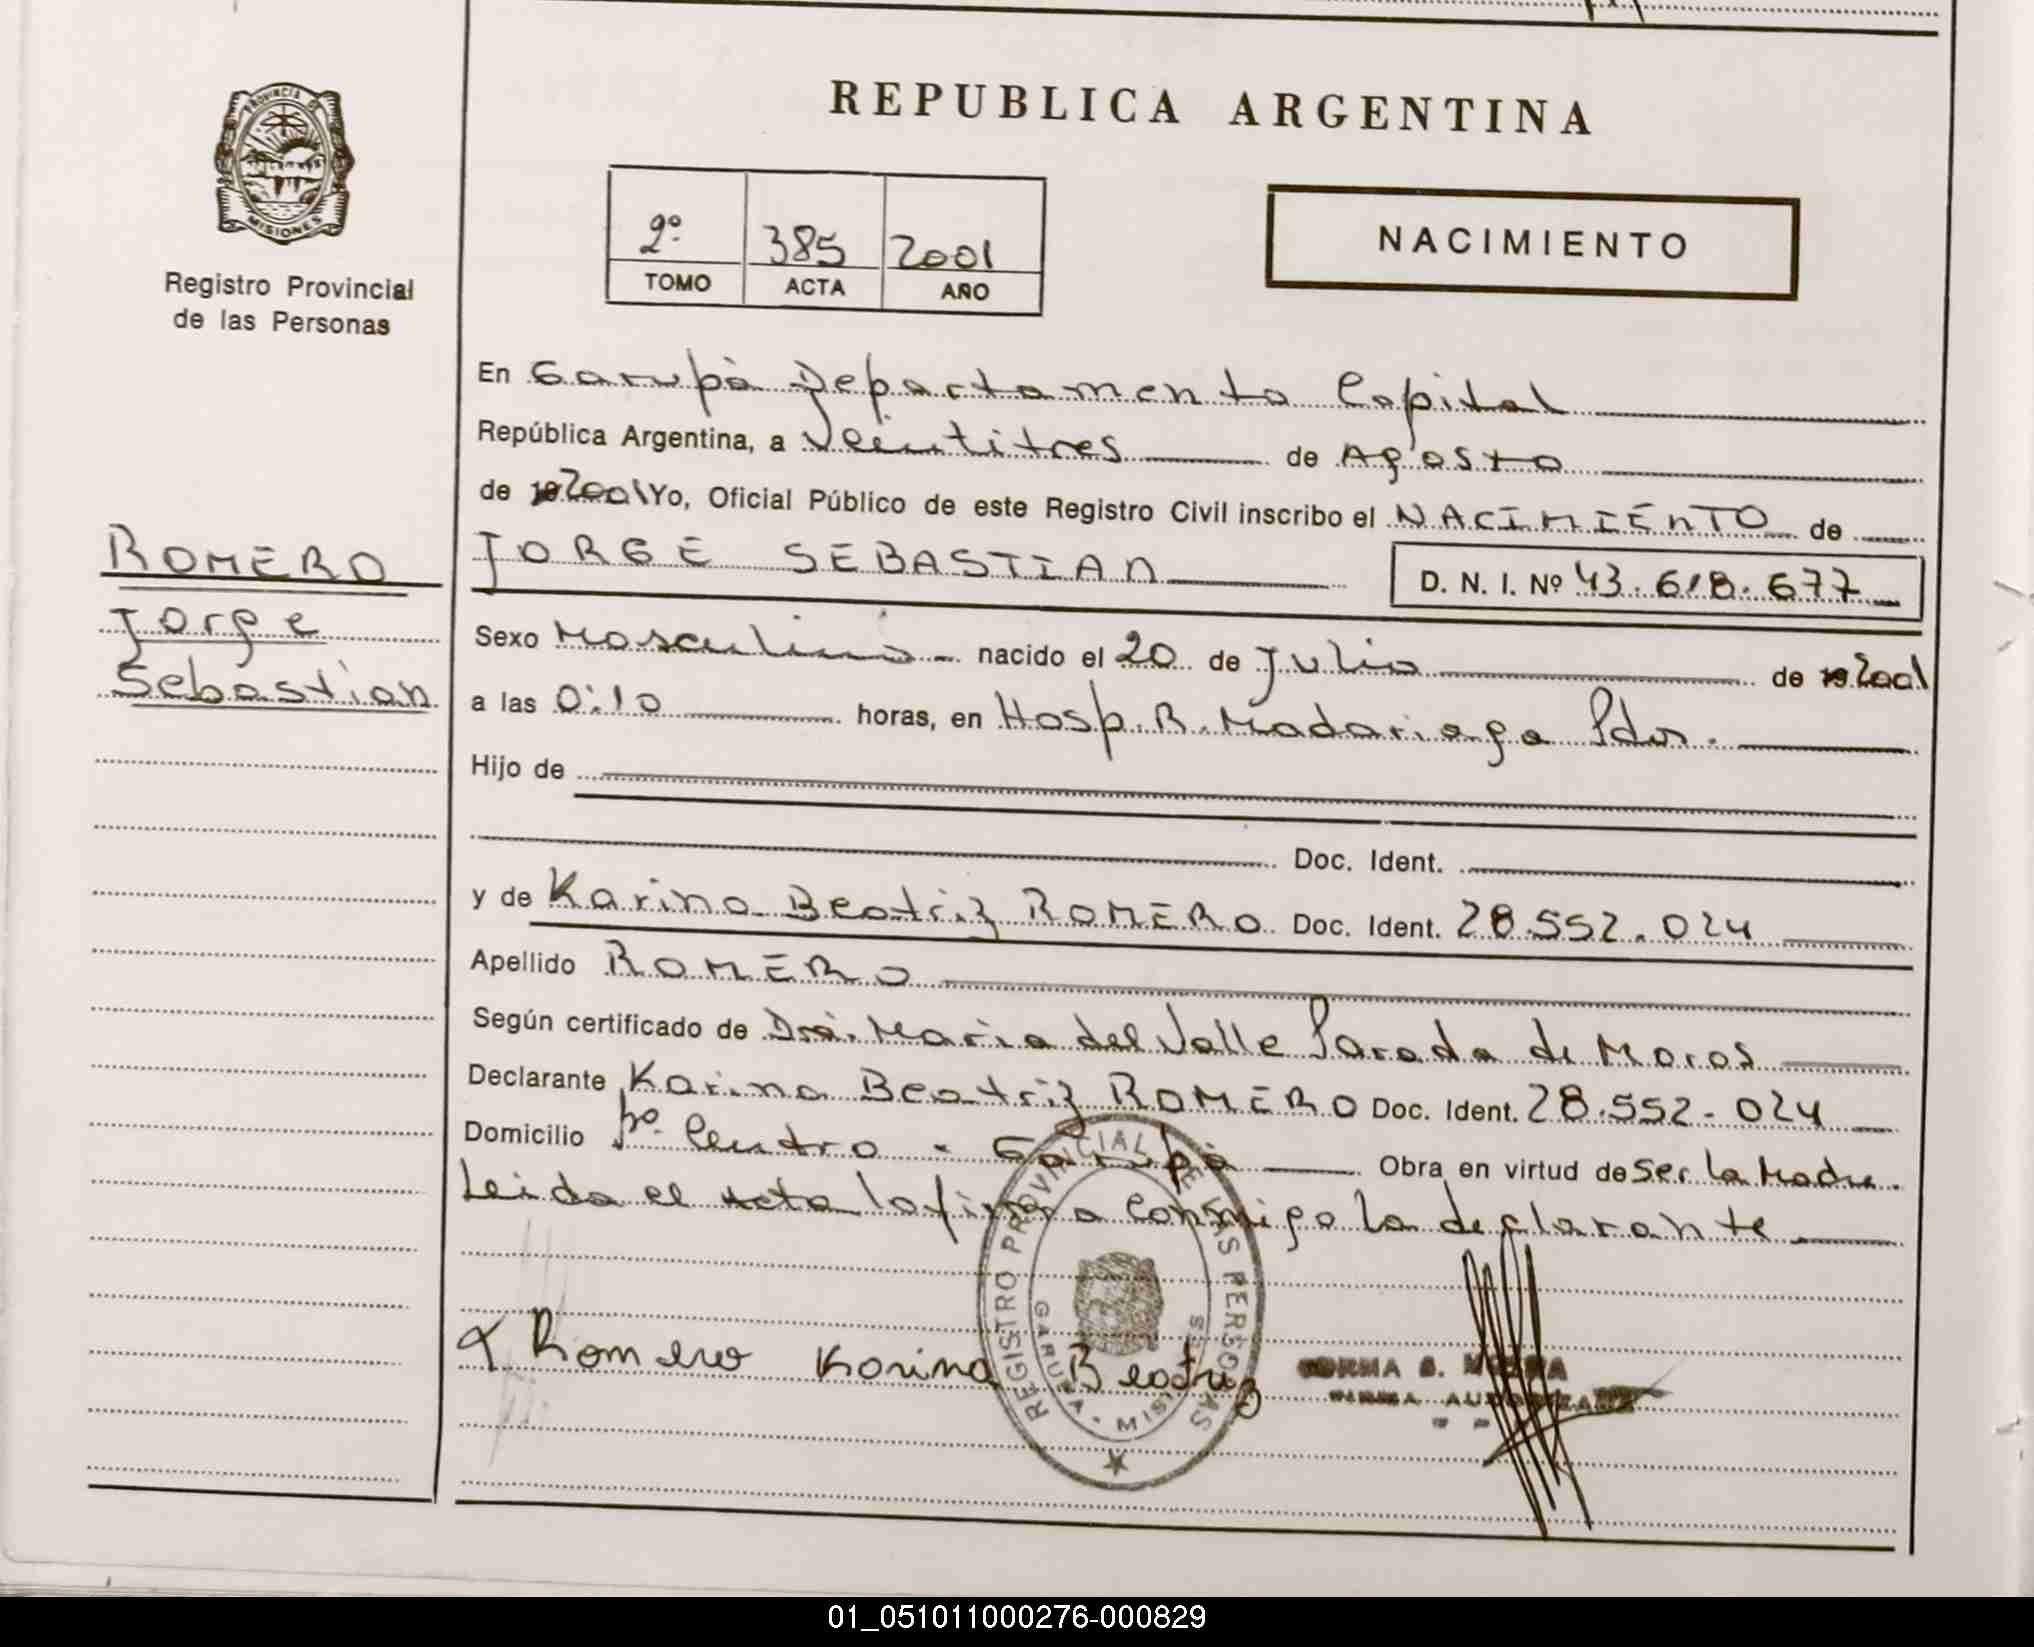 REPUBLICA ARGENTINA
PROVINCIA DE
MISIONES
Registro Provincial
de las Personas
2º 385 2001
TOMO ACTA AÑO
NACIMIENTO
En Garupá Departamento Capital
República Argentina, a Veintitres de Agosto
de 2001 Yo, Oficial Público de este Registro Civil inscribo el NACIMIENTO de
ROMERO
Jorge
Sebastian
JORGE SEBASTIAN D. N. I. Nº 43.618.677
Sexo Masculino nacido el 20 de Julio de 2001
a las 0:10 horas, en Hosp. R. Madariaga Pdas.
Hijo de
Doc. Ident.
y de Karina Beatriz ROMERO Doc. Ident. 28.552.024
Apellido ROMERO
Según certificado de Dra. Maria del Valle Parada de Moros
Declarante Karina Beatriz ROMERO Doc. Ident. 28.552.024
Domicilio Bº. Centro - Garupá Obra en virtud de Ser la Madre.
Leida el Acta la firma Conmigo la declarante
REGISTRO PROVINCIAL DE LAS PERSONAS
GARUPA - MISIONES
Romero Karina Beatriz
01_051011000276-000829